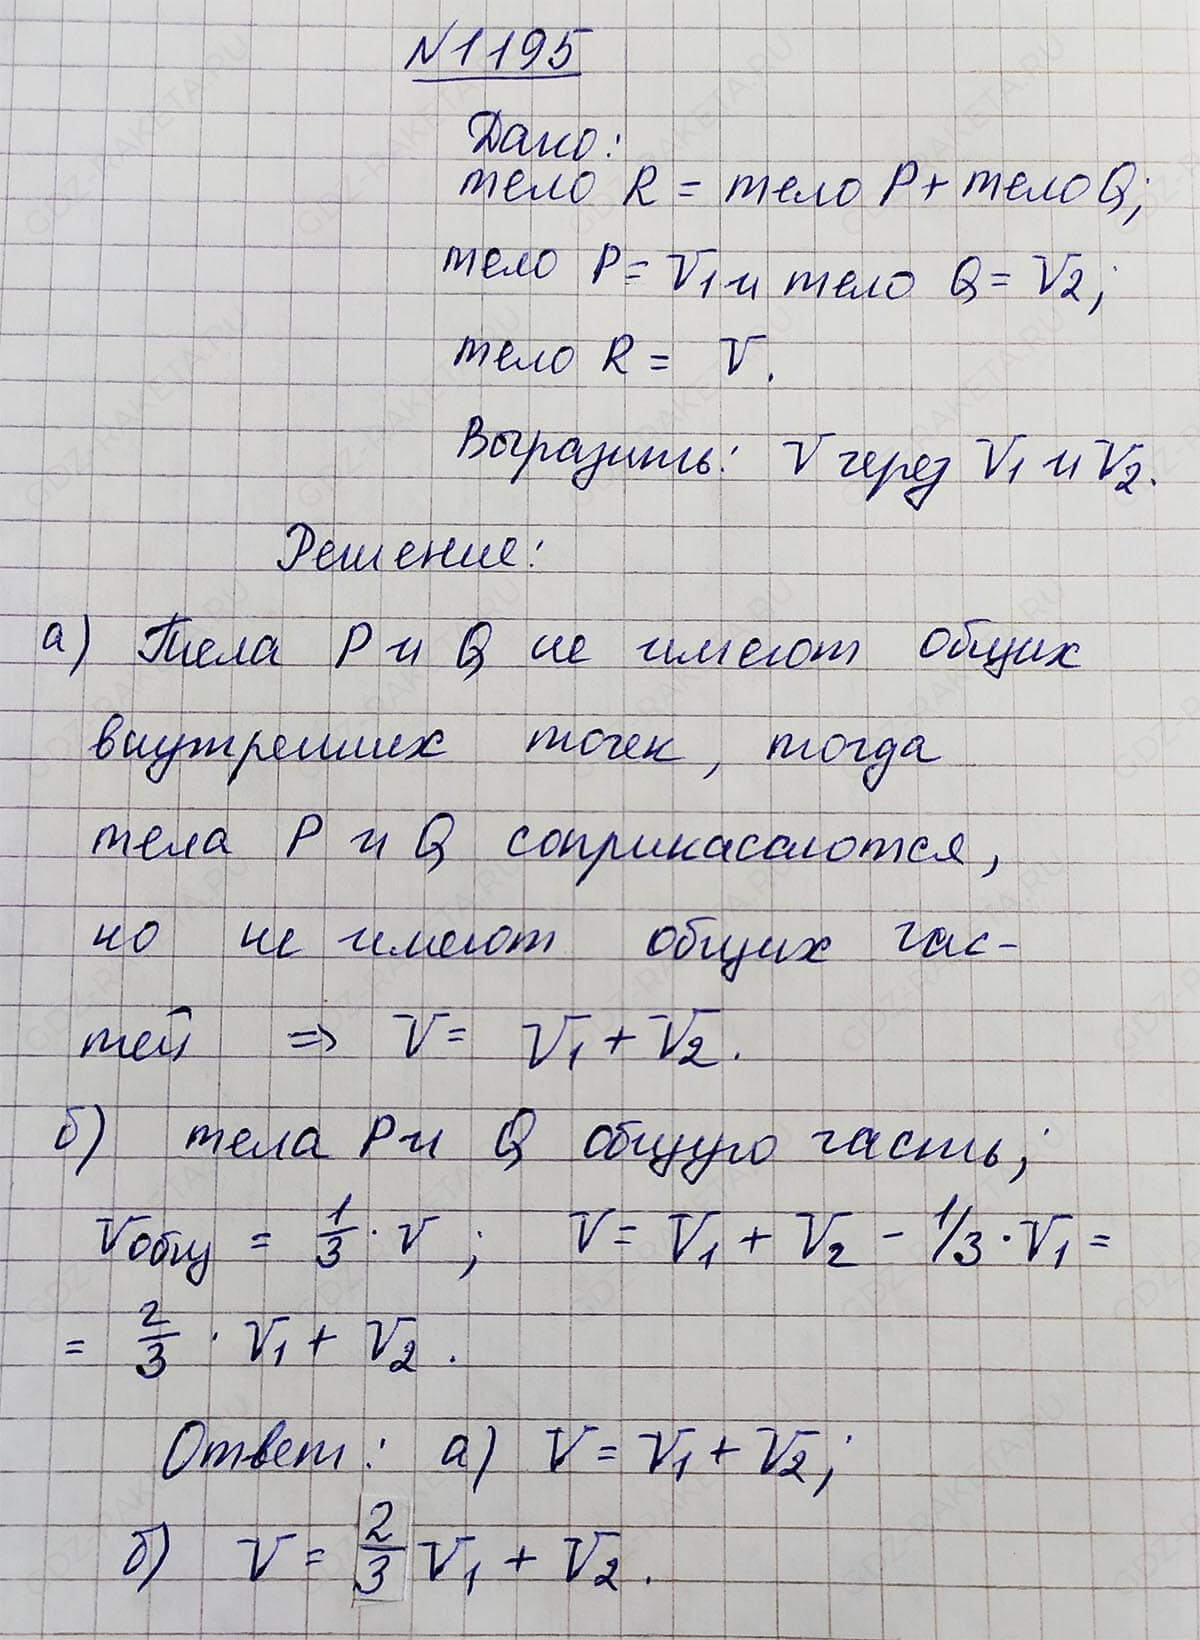 N1195
Дано:
тело R = тело P + тело Q;
тело P = V1 и тело Q = V2;
тело R = V.
Выразить: V через V1 и V2.
Решение:
а) Тела P и Q не имеют общих
внутренних точек, тогда
тела P и Q соприкасаются,
но не имеют общих час-
тей => V = V1 + V2.
б) тела P и Q общую часть;
Vобщ = 1/3 · V ; V = V1 + V2 - 1/3 · V1 =
= 2/3 · V1 + V2 .
Ответ: а) V = V1 + V2;
б) V = 2/3 V1 + V2 .
GDZ-RAKETA.RU